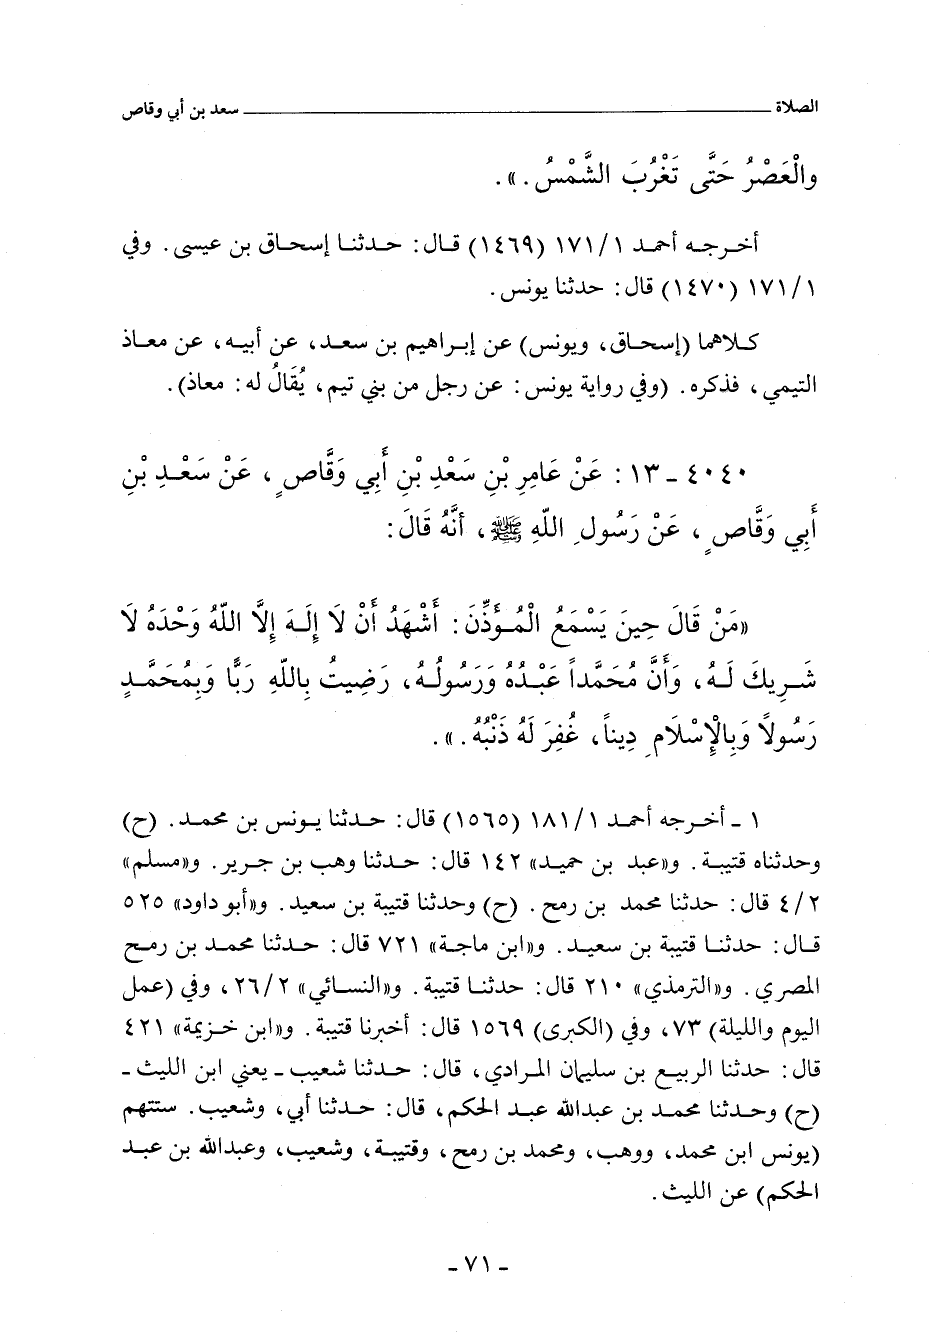 الصلاة ـــــــــــــــــــــــــــــــ سعد بن أبي وقاص
والْعَصْرُ حَتَّى تَغْرُبَ الشَّمْسُ.».
أخرجه أحمد ١/١٧١ (١٤٦٩) قال: حدثنا إسحاق بن عيسى. وفي
١/١٧١ (١٤٧٠) قال: حدثنا يونس.
كلاهما (إسحاق، ويونس) عن إبراهيم بن سعد، عن أبيه، عن معاذ
التيمي، فذكره. (وفي رواية يونس: عن رجل من بني تيم، يُقَالُ له: معاذ).
٤٠٤٠ ـ ١٣: عَنْ عَامِرِ بْنِ سَعْدِ بْنِ أَبِي وَقَّاصٍ، عَنْ سَعْدِ بْنِ
أَبِي وَقَّاصٍ، عَنْ رَسُولِ اللّهِ ﷺ، أَنَّهُ قَالَ:
«مَنْ قَالَ حِينَ يَسْمَعُ الْمُؤَذِّنَ: أَشْهَدُ أَنْ لَا إِلَهَ إِلَّا اللّهُ وَحْدَهُ لَا
شَرِيكَ لَهُ، وَأَنَّ مُحَمَّداً عَبْدُهُ وَرَسُولُهُ، رَضِيتُ بِاللّهِ رَبًّا وَبِمُحَمَّدٍ
رَسُولاً وَبِالْإِسْلَامِ دِيناً، غُفِرَ لَهُ ذَنْبُهُ.».
١ ـ أخرجه أحمد ١/١٨١ (١٥٦٥) قال: حدثنا يونس بن محمد. (ح)
وحدثناه قتيبة. و«عبد بن حميد» ١٤٢ قال: حدثنا وهب بن جرير. و«مسلم»
٤/٢ قال: حدثنا محمد بن رمح. (ح) وحدثنا قتيبة بن سعيد. و«أبو داود» ٥٢٥
قال: حدثنا قتيبة بن سعيد. و«ابن ماجة» ٧٢١ قال: حدثنا محمد بن رمح
المصري. و«الترمذي» ٢١٠ قال: حدثنا قتيبة. و«النسائي» ٢٦/٢، وفي (عمل
اليوم والليلة) ٧٣، وفي (الكبرى) ١٥٦٩ قال: أخبرنا قتيبة. و«ابن خزيمة» ٤٢١
قال: حدثنا الربيع بن سليمان المرادي، قال: حدثنا شعيب ـ يعني ابن الليث ـ
(ح) وحدثنا محمد بن عبدالله عبد الحكم، قال: حدثنا أبي، وشعيب. ستتهم
(يونس ابن محمد، ووهب، ومحمد بن رمح، وقتيبة، وشعيب، وعبدالله بن عبد
الحكم) عن الليث.
ـ ٧١ ـ